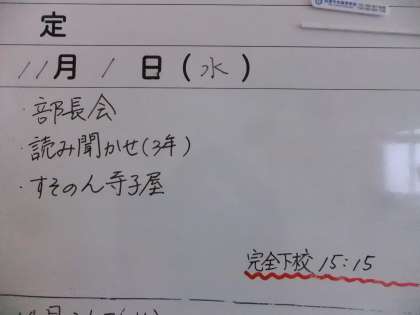 定
11月1日(水)
・部長会
・読み聞かせ(3年)
・すそのん寺子屋
完全下校 15:15